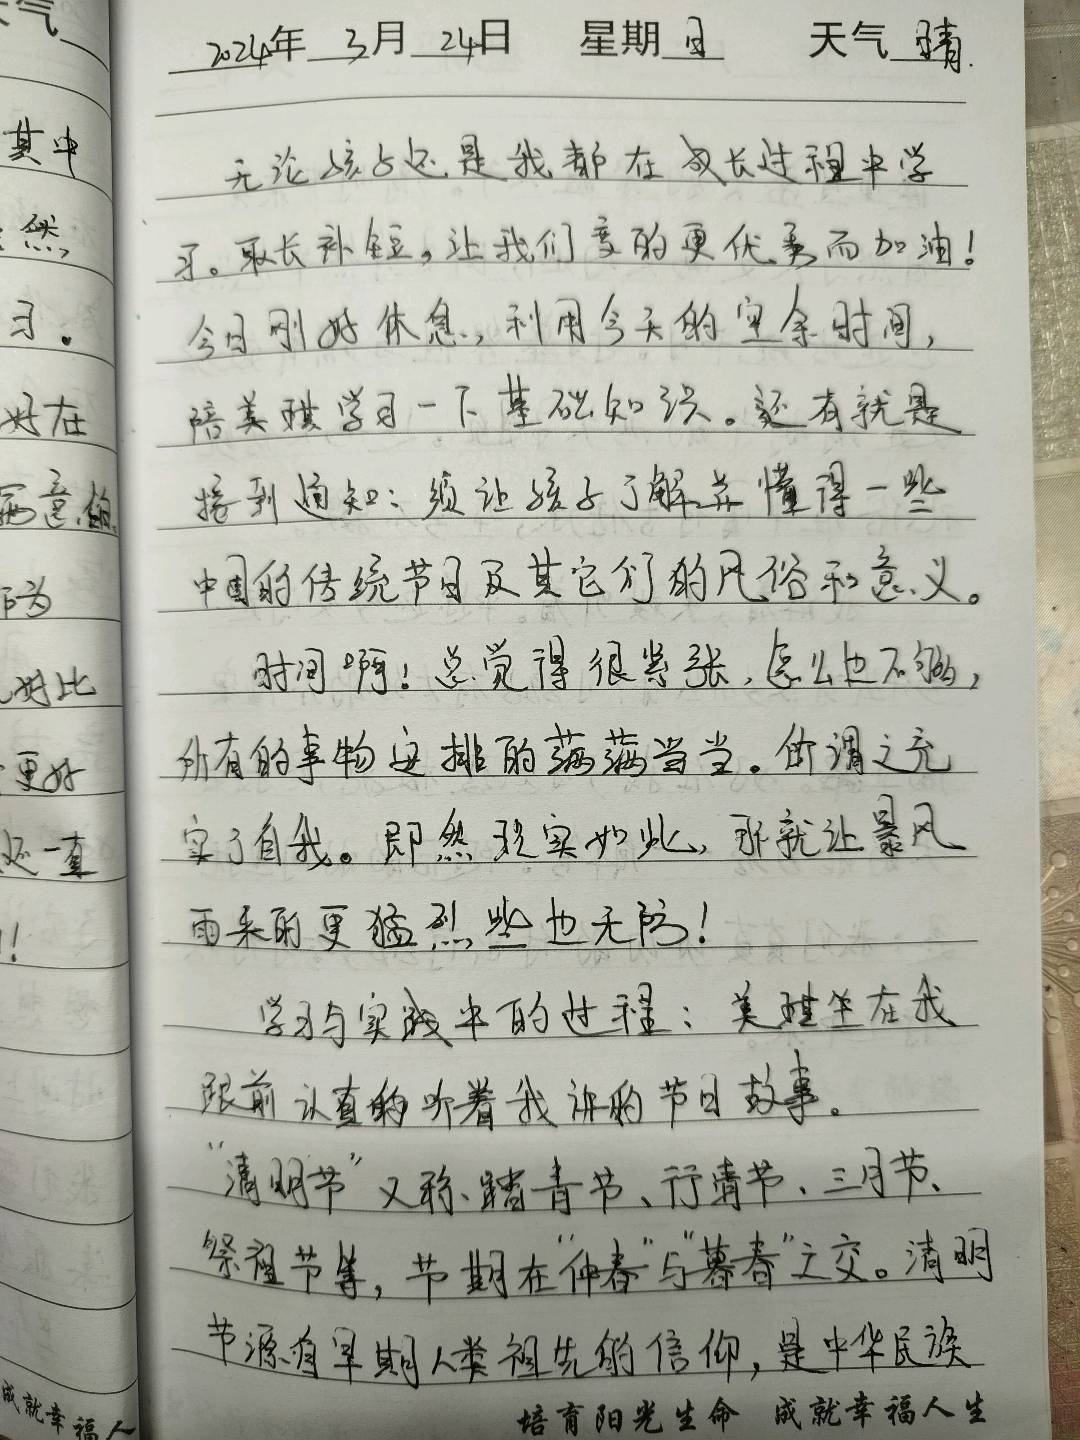 天气
其中
然,
习。
好在
满意的
作为
对比
更好
还一直
!
成就幸福人
2024年 3月 24日 星期日 天气 晴.
无论孩子还是我都在成长过程中学
习。取长补短,让我们变的更优秀而加油!
今日刚好休息,利用今天的空余时间,
陪美琪学习一下基础知识。还有就是
接到通知:须让孩子了解并懂得一些
中国的传统节日及其它们的风俗和意义。
时间啊!总觉得很紧张,怎么也不够,
所有的事物安排的满满当当。所谓之充
实了自我。即然现实如此,那就让暴风
雨来的更猛烈些也无防!
学习与实践中的过程:美琪坐在我
跟前认真的听着我讲的节日故事。
“清明节”又称、踏青节、行清节、三月节、
祭祖节等,节期在“仲春”与“暮春”之交。清明
节源自早期人类祖先的信仰,是中华民族
培育阳光生命 成就幸福人生